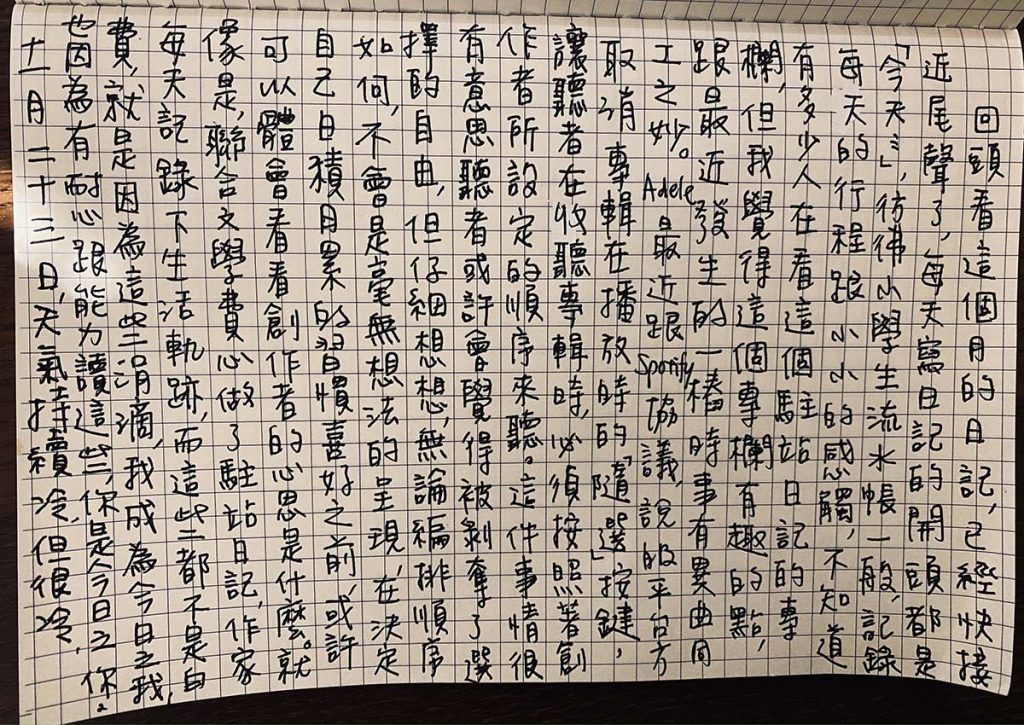 回頭看這個月的日記，已經快接
近尾聲了，每天寫日記的開頭都是
「今天…」，彷彿小學生流水帳一般，記錄
每天的行程跟小小的感觸，不知道
有多少人在看這個駐站日記的專
欄，但我覺得這個專欄有趣的點，
跟最近發生的一樁時事有異曲同
工之妙。Adele最近跟Spotify協議，說服平台方
取消專輯在播放時的「隨選」按鍵，
讓聽者在收聽專輯時，必須按照著創
作者所設定的順序來聽。這件事情很
有意思聽者或許會覺得被剝奪了選
擇的自由，但仔細想想，無論編排順序
如何，不會是毫無想法的呈現，在決定
自己日積月累的習慣喜好之前，或許
可以體會看看創作者的心思是什麼。就
像是，聯合文學費心做了駐站日記，作家
每天記錄下生活軌跡，而這些都不是白
費，就是因為這些涓滴，我成為今日之我，
也因為有耐心跟能力讀這些，你是今日之你。
十一月二十三日，天氣持續冷，但很冷，